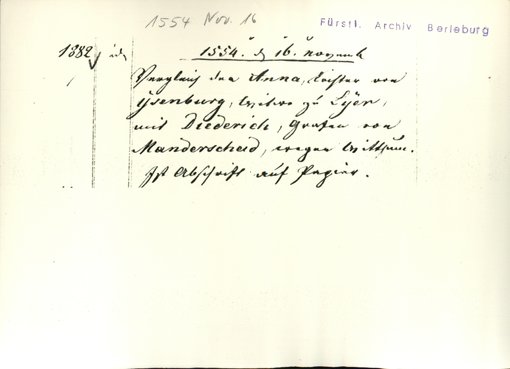 1554 Nov. 16
Fürstl. Archiv Berleburg
1882
1554. d 16. novemb
Vergleich der Anna, Tochter von
Ysenburg, Witwe zu Lyer,
mit Diederich, Grafen von
Manderscheid, wegen Witthum.
Ist Abschrift auf Papier.